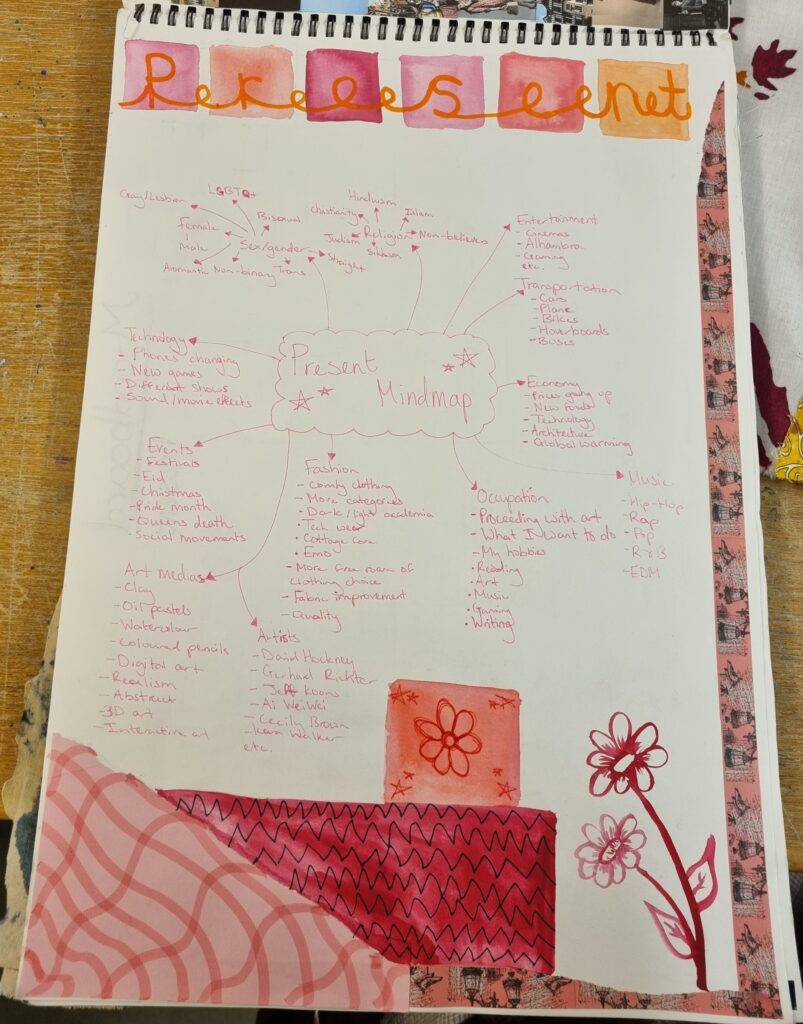 Present
Gay/Lesbian
LGBTQ+
Bisexual
Female
Male
Sex/gender
Aromantic
Non-binary
Trans
Straight
Hinduism
Christianity
Islam
Judism
Religion
Non-believes
Sikhism
Entertainment
- Cinemas
- Alhambra
- Gaming
etc.
Transportation
- Cars
- Plane
- Bikes
- Hoverboards
- Buses
Present
Mindmap
Technology
- Phones changing
- New games
- Different shows
- Sound/movie effects
Economy
- Prices going up
- New foods
- Technology
- Architecture
- Global warming
Events
- Festivals
- Eid
- Christmas
- Pride month
- Queens death
- Social movements
Fashion
- Comfy clothing
- More categories
• Dark/light accdemia
• Tech wear
• Cottage core
• Emo
- More free roam of
clothing choice
- Fabric improvement
- Quality
Occupation
- Proceeding with art
- What I want to do
- My hobbies
• Reading
• Art
• Music
• Gaming
• Writing
Music
- Hip-Hop
- Rap
- Pop
- R&B
- EDM
Art medias
- Clay
- Oil pastels
- Watercolour
- Coloured pencils
- Digital art
- Realism
- Abstract
- 3D art
- Interactive art
Artists
- David Hockney
- Gerhard Richter
- Jeff Koons
- Ai WeiWei
- Cecily Brown
- Kara Walker
etc.